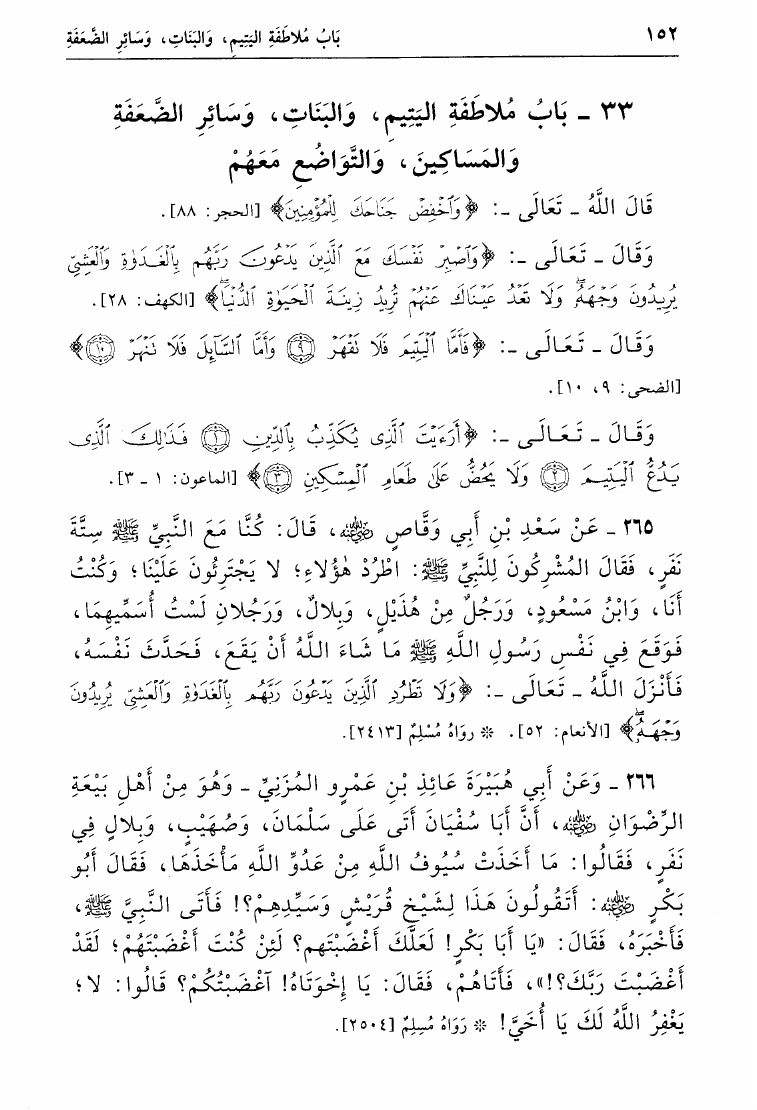 ١٥٢ بَابُ مُلاطَفَةِ اليَتِيمِ، وَالبَنَاتِ، وَسَائِرِ الضَّعَفَةِ
٣٣ ـ بَابُ مُلاطَفَةِ اليَتِيمِ، وَالبَنَاتِ، وَسَائِرِ الضَّعَفَةِ
وَالمَسَاكِينَ، وَالتَّوَاضُعِ مَعَهُمْ
قَالَ اللَّهُ ـ تَعَالَى ـ: ﴿وَٱخْفِضْ جَنَاحَكَ لِلْمُؤْمِنِينَ﴾ [الحجر: ٨٨].
وَقَالَ ـ تَعَالَى ـ: ﴿وَٱصْبِرْ نَفْسَكَ مَعَ ٱلَّذِينَ يَدْعُونَ رَبَّهُم بِٱلْغَدَوٰةِ وَٱلْعَشِىِّ
يُرِيدُونَ وَجْهَهُۥۖ وَلَا تَعْدُ عَيْنَاكَ عَنْهُمْ تُرِيدُ زِينَةَ ٱلْحَيَوٰةِ ٱلدُّنْيَاۖ﴾ [الكهف: ٢٨].
وَقَالَ ـ تَعَالَى ـ: ﴿فَأَمَّا ٱلْيَتِيمَ فَلَا تَقْهَرْ ۝٩ وَأَمَّا ٱلسَّآئِلَ فَلَا تَنْهَرْ ۝١٠﴾
[الضحى: ٩، ١٠].
وَقَالَ ـ تَعَالَى ـ: ﴿أَرَءَيْتَ ٱلَّذِى يُكَذِّبُ بِٱلدِّينِ ۝١ فَذَٰلِكَ ٱلَّذِى
يَدُعُّ ٱلْيَتِيمَ ۝٢ وَلَا يَحُضُّ عَلَىٰ طَعَامِ ٱلْمِسْكِينِ ۝٣﴾ [الماعون: ١ ـ ٣].
٢٦٥ ـ عَنْ سَعْدِ بْنِ أَبِي وَقَّاصٍ رضي الله عنه، قَالَ: كُنَّا مَعَ النَّبِيِّ ﷺ سِتَّةَ
نَفَرٍ، فَقَالَ المُشْرِكُونَ لِلنَّبِيِّ ﷺ: اطْرُدْ هٰؤُلاءِ؛ لا يَجْتَرِئُونَ عَلَيْنَا؛ وَكُنْتُ
أَنَا، وَابْنُ مَسْعُودٍ، وَرَجُلٌ مِنْ هُذَيْلٍ، وَبِلالٌ، وَرَجُلانِ لَسْتُ أُسَمِّيهِمَا،
فَوَقَعَ فِي نَفْسِ رَسُولِ اللَّهِ ﷺ مَا شَاءَ اللَّهُ أَنْ يَقَعَ، فَحَدَّثَ نَفْسَهُ،
فَأَنْزَلَ اللَّهُ ـ تَعَالَى ـ: ﴿وَلَا تَطْرُدِ ٱلَّذِينَ يَدْعُونَ رَبَّهُم بِٱلْغَدَوٰةِ وَٱلْعَشِىِّ يُرِيدُونَ
وَجْهَهُۥۖ﴾ [الأنعام: ٥٢]. * رواهُ مُسْلِمٌ [٢٤١٣].
٢٦٦ ـ وَعَنْ أَبِي هُبَيْرَةَ عَائِذِ بْنِ عَمْرٍو المُزَنِيِّ ـ وَهُوَ مِنْ أَهْلِ بَيْعَةِ
الرِّضْوَانِ رضي الله عنه، أَنَّ أَبَا سُفْيَانَ أَتَى عَلَى سَلْمَانَ، وَصُهَيْبٍ، وَبِلالٍ فِي
نَفَرٍ، فَقَالُوا: مَا أَخَذَتْ سُيُوفُ اللَّهِ مِنْ عَدُوِّ اللَّهِ مَأْخَذَهَا، فَقَالَ أَبُو
بَكْرٍ رضي الله عنه: أَتَقُولُونَ هَذَا لِشَيْخِ قُرَيْشٍ وَسَيِّدِهِمْ؟! فَأَتَى النَّبِيَّ ﷺ،
فَأَخْبَرَهُ، فَقَالَ: «يَا أَبَا بَكْرٍ! لَعَلَّكَ أَغْضَبْتَهم؟ لَئِنْ كُنْتَ أَغْضَبْتَهُمْ؛ لَقَدْ
أَغْضَبْتَ رَبَّكَ؟!»، فَأَتَاهُمْ، فَقَالَ: يَا إِخْوَتَاهُ! آغْضَبْتُكُمْ؟ قَالُوا: لا؛
يَغْفِرُ اللَّهُ لَكَ يَا أُخَيَّ! * رَوَاهُ مُسِلِمٌ [٢٥٠٤].